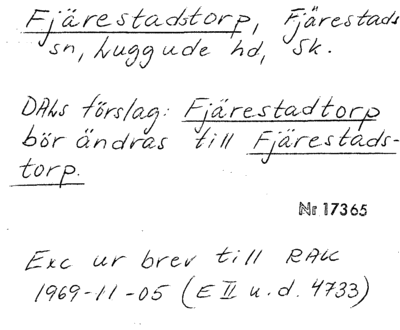 Fjärestadstorp, Fjärestads
sn, Luggude hd, Sk.
DALs förslag: Fjärestadtorp
bör ändras till Fjärestads-
torp.
Nr 17365
Exc ur brev till RAK
1969-11-05 (E II u.d. 4733)